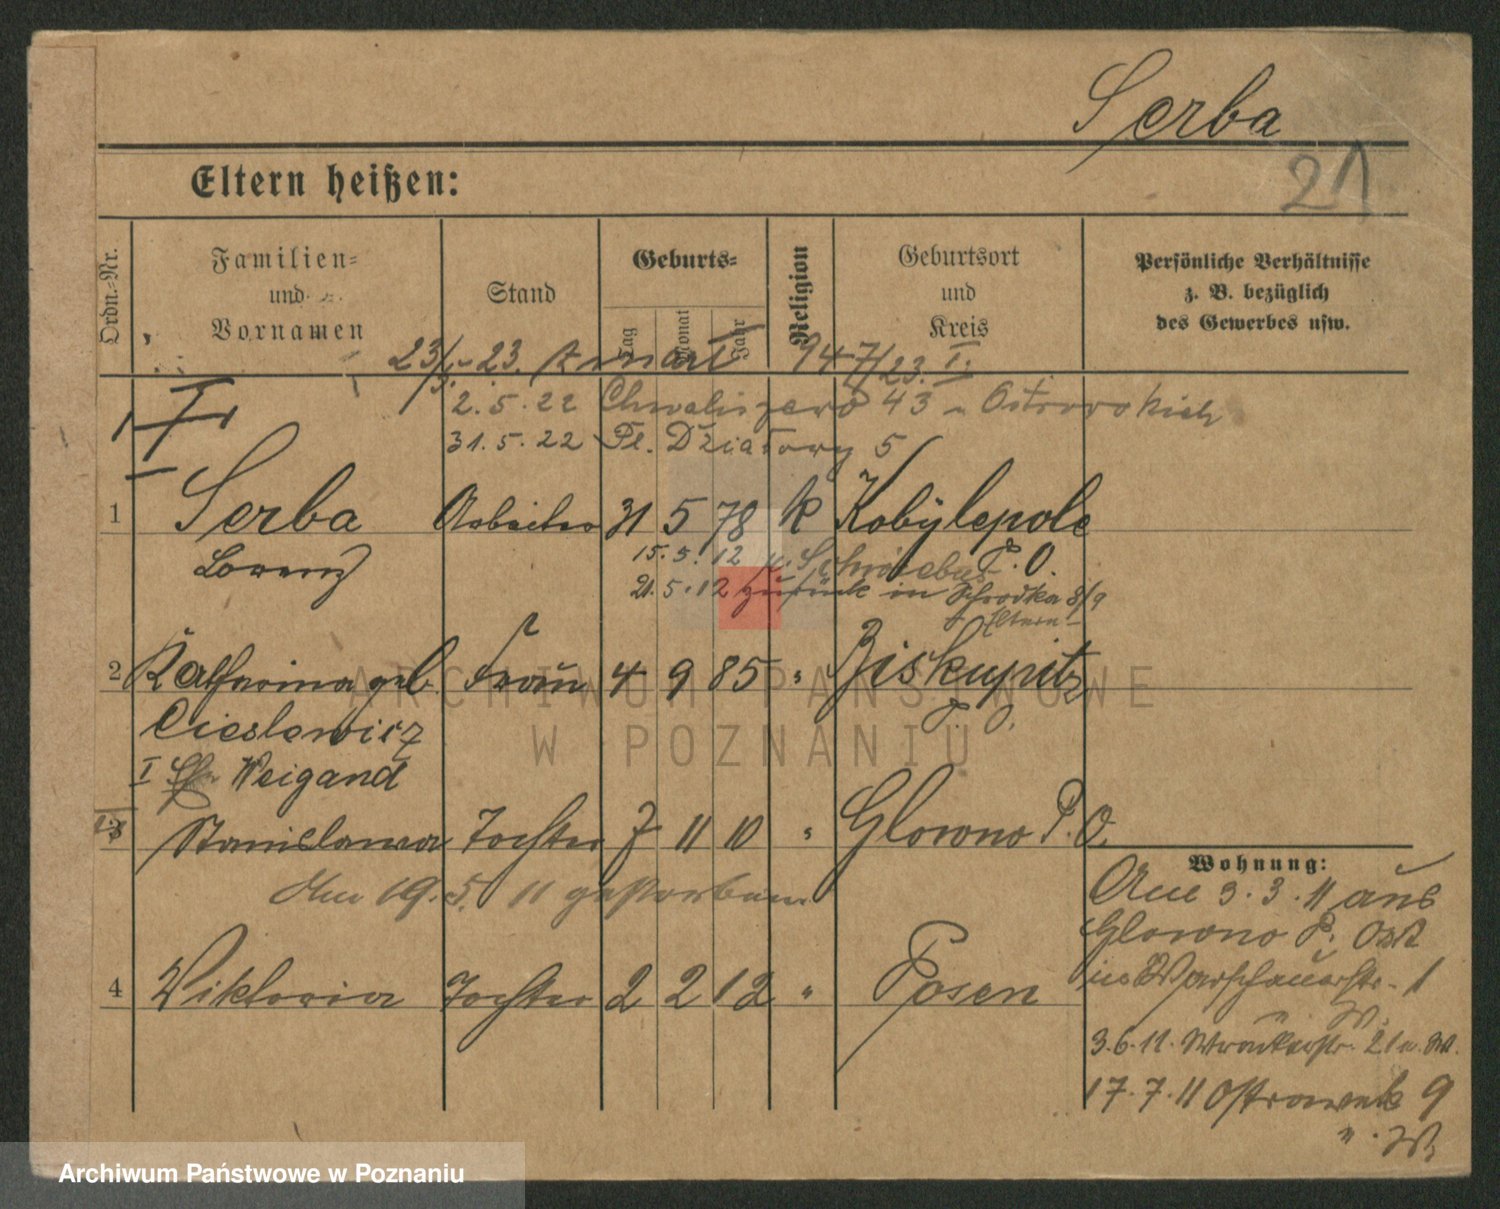 Serba
21
Eltern heißen:
Ordn.-Nr.
Familien-
und
Vornamen
Stand
Geburts-
Tag
Monat
Jahr
Religion
Geburtsort
und
Kreis
Persönliche Verhältnisse
z. B. bezüglich
des Gewerbes usw.
23. 23. I.
2.5.22 Chwaliszewo 43
31.5.22 Pl. Działowy 5
1 Serba Arbeiter 31 5 78 k Kobylepole
Lorenz P. O.
15.5.12
21.5.12 zurück in Schrodka 8/9
Eltern
2 Katharina geb. Frau 4 9 85 " Biskupitz
Cieslewicz P. O.
I Weigand
3 Stanislawa Tochter 7 11 10 " Glowno P. O.
Am 19.5.11 gestorben
4 Viktoria Tochter 2 2 12 " Posen
Wohnung:
Am 3.3.11 aus
Glowno P. Ost
in Warschauerstr. 1
" W.
3.6.11. 21 n. W.
17.7.11 Ostrowek 9
" W.
ARCHIWUM PAŃSTWOWE
W POZNANIU
Archiwum Państwowe w Poznaniu